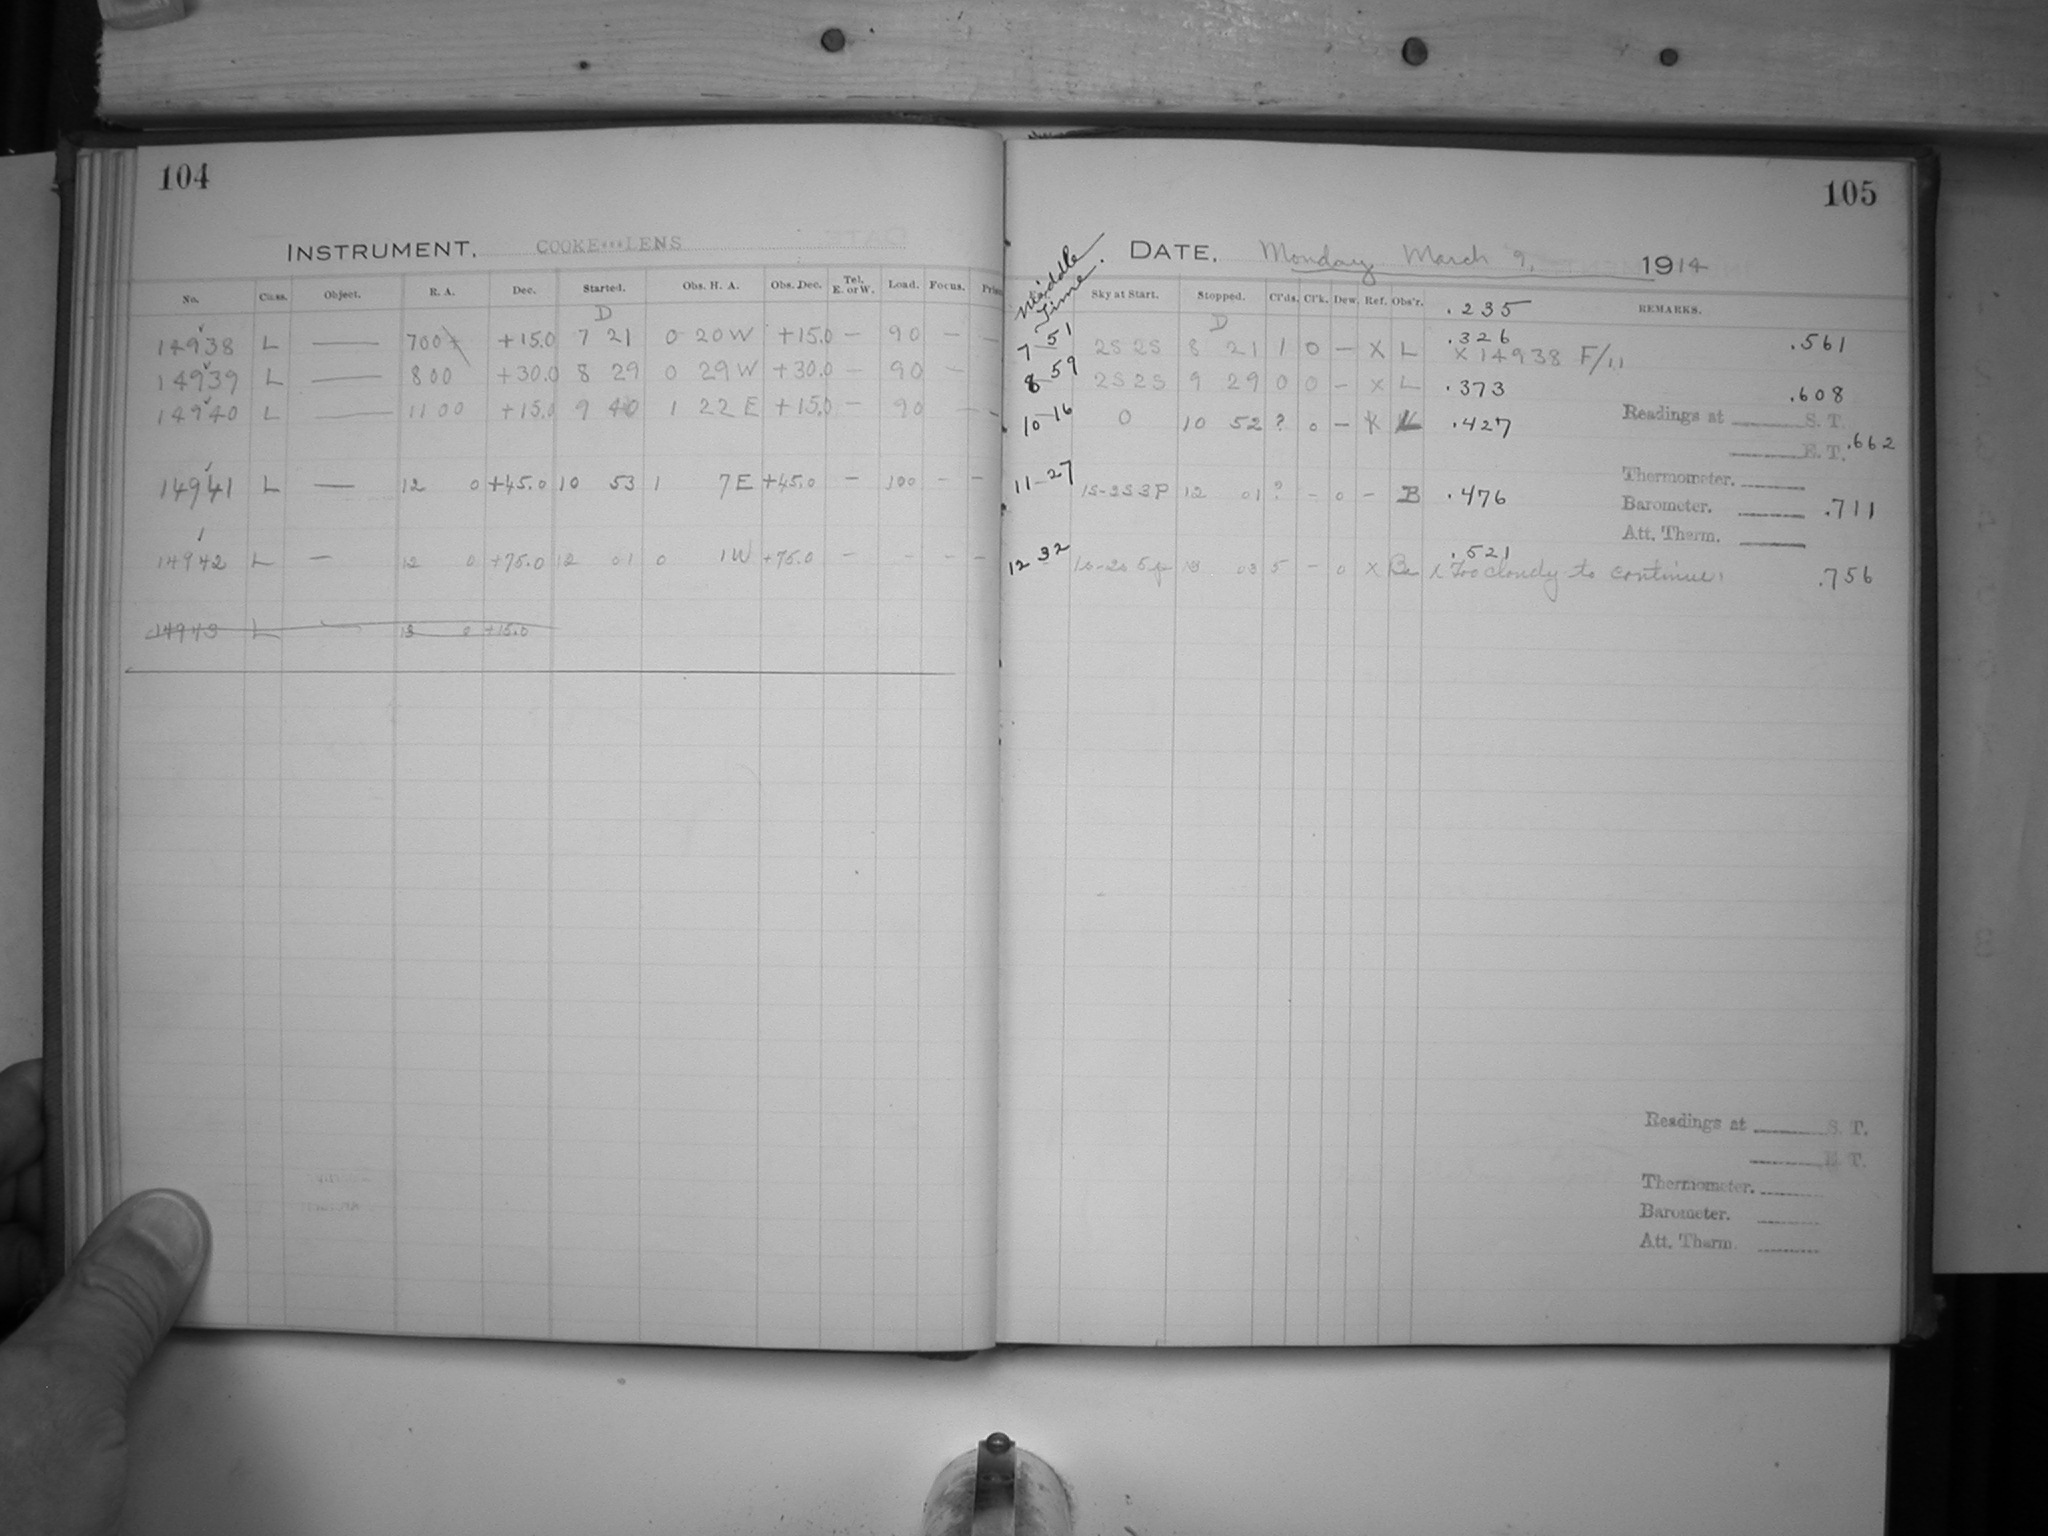 104
INSTRUMENT. COOKE***LENS
No. Class. Object. R. A. Dec. Started. Obs. H. A. Obs. Dec. Tel. E. or W. Load. Focus.
D
14938 L — 700 +15.0 7 21 0 20 W +15.0 — 90 — —
14939 L — 8 00 +30.0 8 29 0 29 W +30.0 — 90 —
14940 L — 11 00 +15.0 9 40 1 22 E +15.0 — 90 — —
14941 L — 12 0 +45.0 10 53 1 7 E +45.0 — 100 — —
14942 L — 12 0 +75.0 12 01 0 1 W +75.0 — - - —
14943 L — 13 0 +15.0
105
DATE. Monday March 9, 1914
Middle Time. Sky at Start. Stopped. Cl'ds. Cl'k. Dew. Ref. Obs'r. REMARKS.
.235
D
7-51 2S 2S 8 21 1 0 — X L .326 .561
X 14938 F/11
8 59 2S 2S 9 29 0 0 - X L .373 .608
10-16 0 10 52 ? 0 — X .427 .662
Readings at S. T.
E. T.
11-27 1S-2S 3P 12 01 ? - 0 - B .476 .711
Thermometer.
Barometer.
Att. Therm.
12 32 1s-2s 5p 13 03 5 - 0 X .521 .756
X Too cloudy to continue.
Readings at S. T.
E. T.
Thermometer.
Barometer.
Att. Therm.